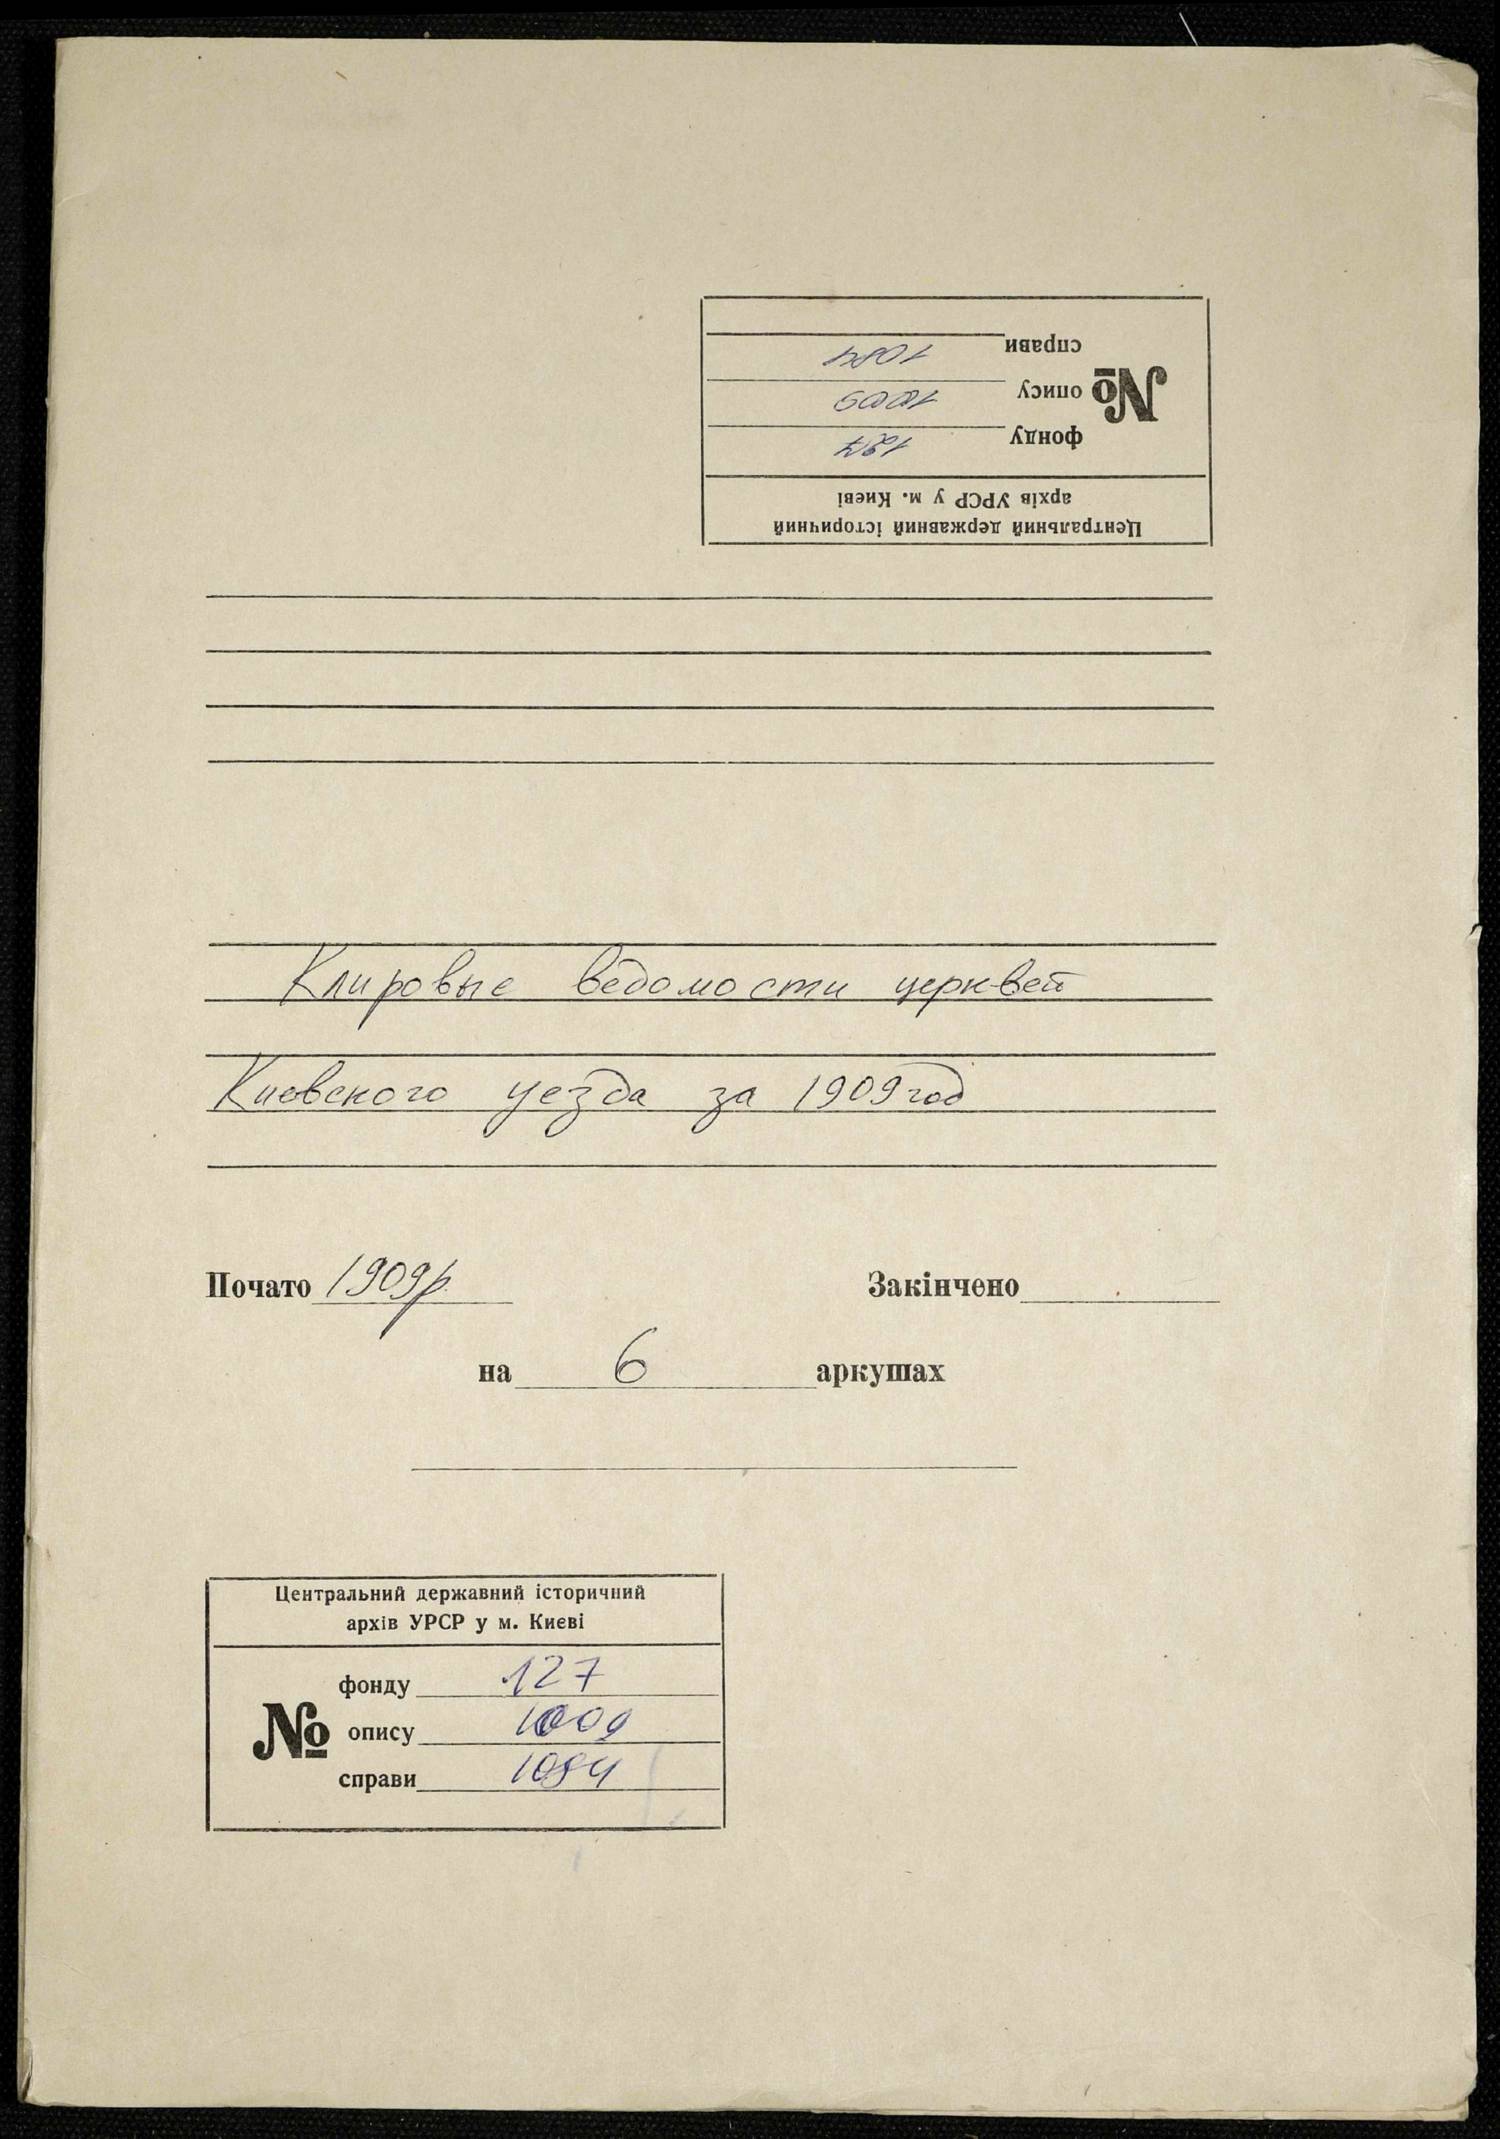 Центральний державний історичний
архів УРСР у м. Києві
№
фонду 127
опису 1009
справи 1084
Клировые ведомости церквей
Киевского уезда за 1909 год
Почато 1909р. Закінчено
на 6 аркушах
Центральний державний історичний
архів УРСР у м. Києві
№
фонду 127
опису 1009
справи 1084